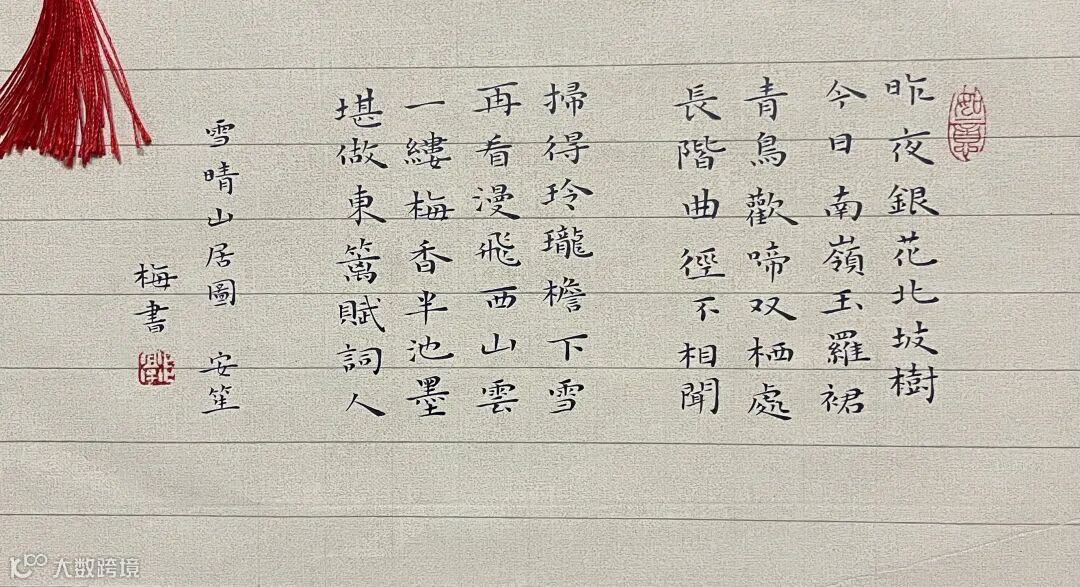 如意
昨夜銀花北坡樹
今日南嶺玉羅裙
青鳥歡啼双栖處
長階曲徑不相聞
掃得玲瓏檐下雪
再看漫飛西山雲
一縷梅香半池墨
堪做東籬賦詞人
雪晴山居圖 安笙
梅書
大数跨境